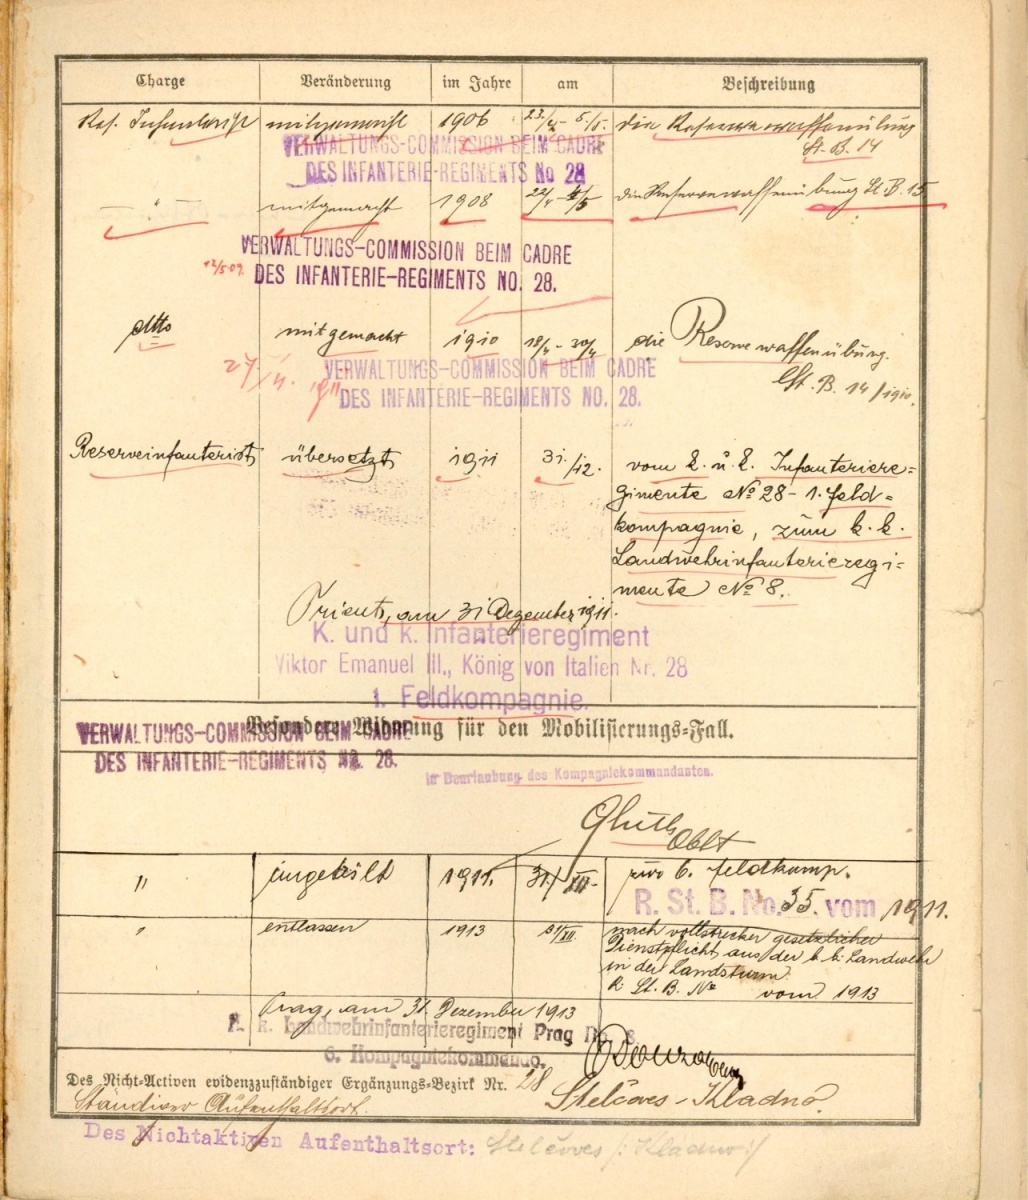 Charge Veränderung im Jahre am Beschreibung
Res. Infanterist mitgemacht 1906 23/4 - 5/5. die Reservewaffenübung
St. B. 14
VERWALTUNGS-COMMISSION BEIM CADRE
DES INFANTERIE-REGIMENTS No 28
— " — mitgemacht 1908 22/4 - 5/5 die Reservewaffenübung St. B. 15
VERWALTUNGS-COMMISSION BEIM CADRE
12/5 09. DES INFANTERIE-REGIMENTS NO. 28.
dtto mitgemacht 1910 18/4 - 30/4 die Reservewaffenübung.
VERWALTUNGS-COMMISSION BEIM CADRE
St. B. 14/1910.
DES INFANTERIE-REGIMENTS NO. 28.
Reserveinfanterist übersetzt 1911 31/12. vom k. u. k. Infanteriere-
gimente No 28 - 1. Feld-
kompagnie, zum k. k.
Landwehrinfanterieregi-
mente No 8.
Trient, am 31 Dezember 1911.
K. und k. Infanterieregiment
Viktor Emanuel III., König von Italien Nr. 28
1. Feldkompagnie.
Besondere Widmung für den Mobilisierungs-Fall.
VERWALTUNGS-COMMISSION BEIM CADRE
DES INFANTERIE-REGIMENTS No. 28.
In Beurlaubung des Kompagniekommandanten.
Oblt
" eingeteilt 1911. 31./XII. zur 6. Feldkomp.
R. St. B. No. 35. vom 1911.
" entlassen 1913 31/XII. nach vollstreckter gesetzlicher
Dienstpflicht aus der k. k. Landwehr
in der Landsturm.
R. St. B. No vom 1913
Prag, am 31. Dezember 1913
k. k. Landwehrinfanterieregiment Prag No. 8.
6. Kompagniekommando.
Des Nicht-Activen evidenzzuständiger Ergänzungs-Bezirk Nr. 28
Ständiger Aufenthaltsort. Stelčoves - Kladno.
Des Nichtaktiven Aufenthaltsort: Stelčoves /: Kladno :/